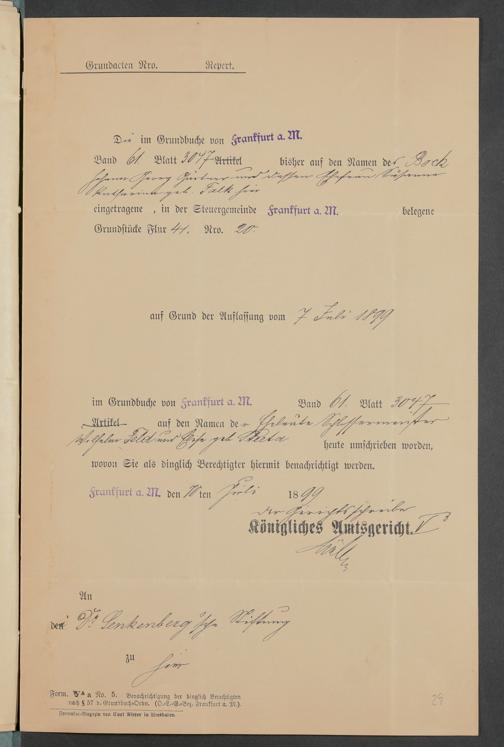 Grundacten Nro. Repert.
Die im Grundbuche von Frankfurt a. M.
Band 61 Blatt 3047 Artikel bisher auf den Namen des Bock
Johann Georg und dessen Ehefrau Susanna
Katharina geb. Falk hier
eingetragene, in der Steuergemeinde Frankfurt a. M. belegene
Grundstücke Flur 41. Nro. 20.
auf Grund der Auflassung vom 7 Juli 1899
im Grundbuche von Frankfurt a. M. Band 61. Blatt 3047
Artikel auf den Namen der Eheleute Schlossermeister
Wilhelm und geb. heute umschrieben worden,
wovon Sie als dinglich Berechtigter hiermit benachrichtigt werden.
Frankfurt a. M. den 10 ten Juli 1899
der Gerichtsschreiber
Königliches Amtsgericht. V
An
die Dr Senkenberg'sche Stiftung
zu hier
Form. a No. 5. Benachrichtigung der dinglich Berechtigten
nach § 57 d. Grundbuch-Ordn. (O.-L.-G.-Bez. Frankfurt a. M.).
Formular-Magazin von Carl Ritter in Wiesbaden.
29